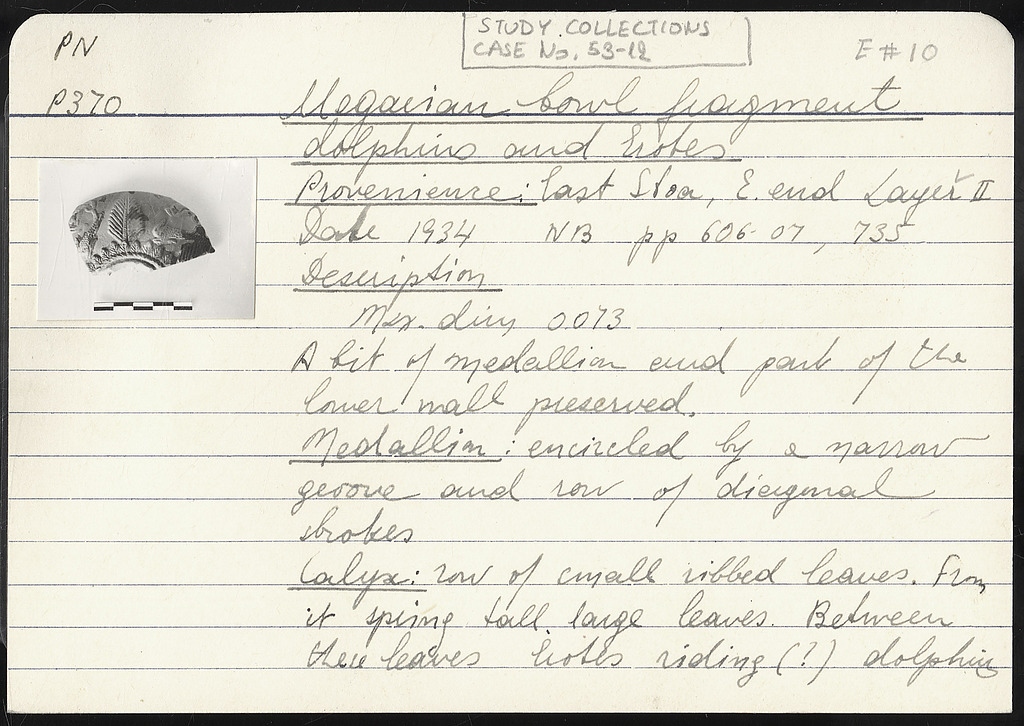 PN
STUDY COLLECTIONS
CASE No. 53-12
E#10
P370
Megarian bowl fragment
dolphins and Erotes
Provenience: East Stoa, E. end Layer II
Date 1934 NB pp 606-07, 735
Description
Max. dim 0.073
A bit of medallion and part of the
lower wall preserved.
Medallion: encircled by a narrow
groove and row of diagonal
strokes
Calyx: row of small ribbed leaves. From
it spring tall large leaves. Between
these leaves Erotes riding (?) dolphins